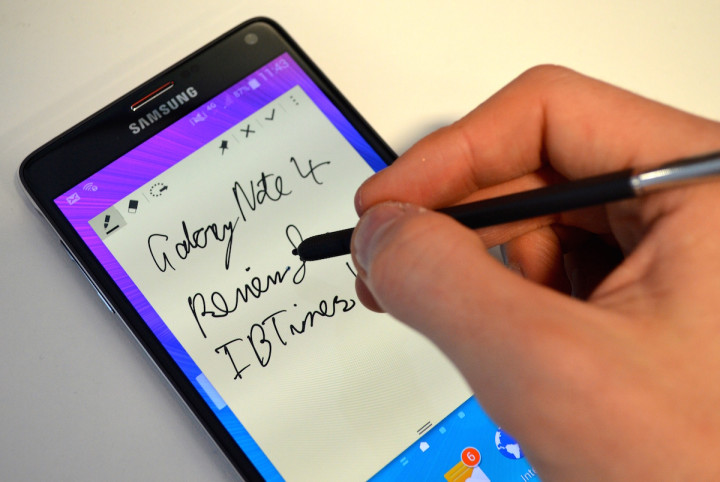 SAMSUNG
4G 87% 11:43
Galaxy Note 4
Review
IBTimes
6
Inte